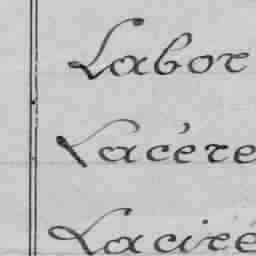 Labor
Lacére
Laciré